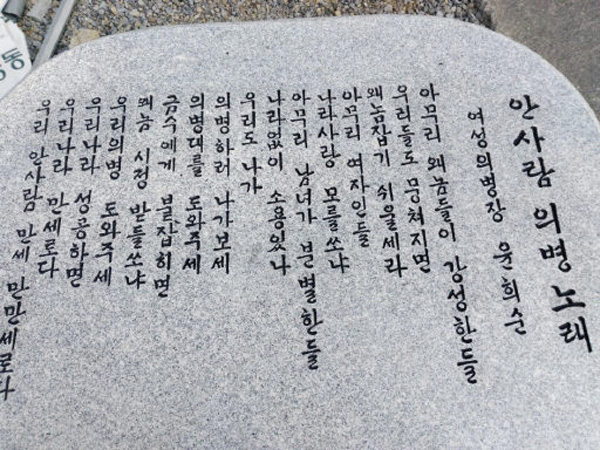 안사람 의병 노래
여성의병장 윤희순
아무리 왜놈들이 강성한들
우리들도 뭉쳐지면
왜놈잡기 쉬울세라
아무리 여자인들
나라사랑 모를쏘냐
아무리 남녀가 분별한들
나라없이 소용있나
우리도 나가
의병하러 나가보세
의병대를 도와주세
금수에게 붙잡히면
왜놈 시정 받들쏘냐
우리의병 도와주세
우리나라 성공하면
우리나라 만세로다
우리 안사람 만세 만만세로다
동